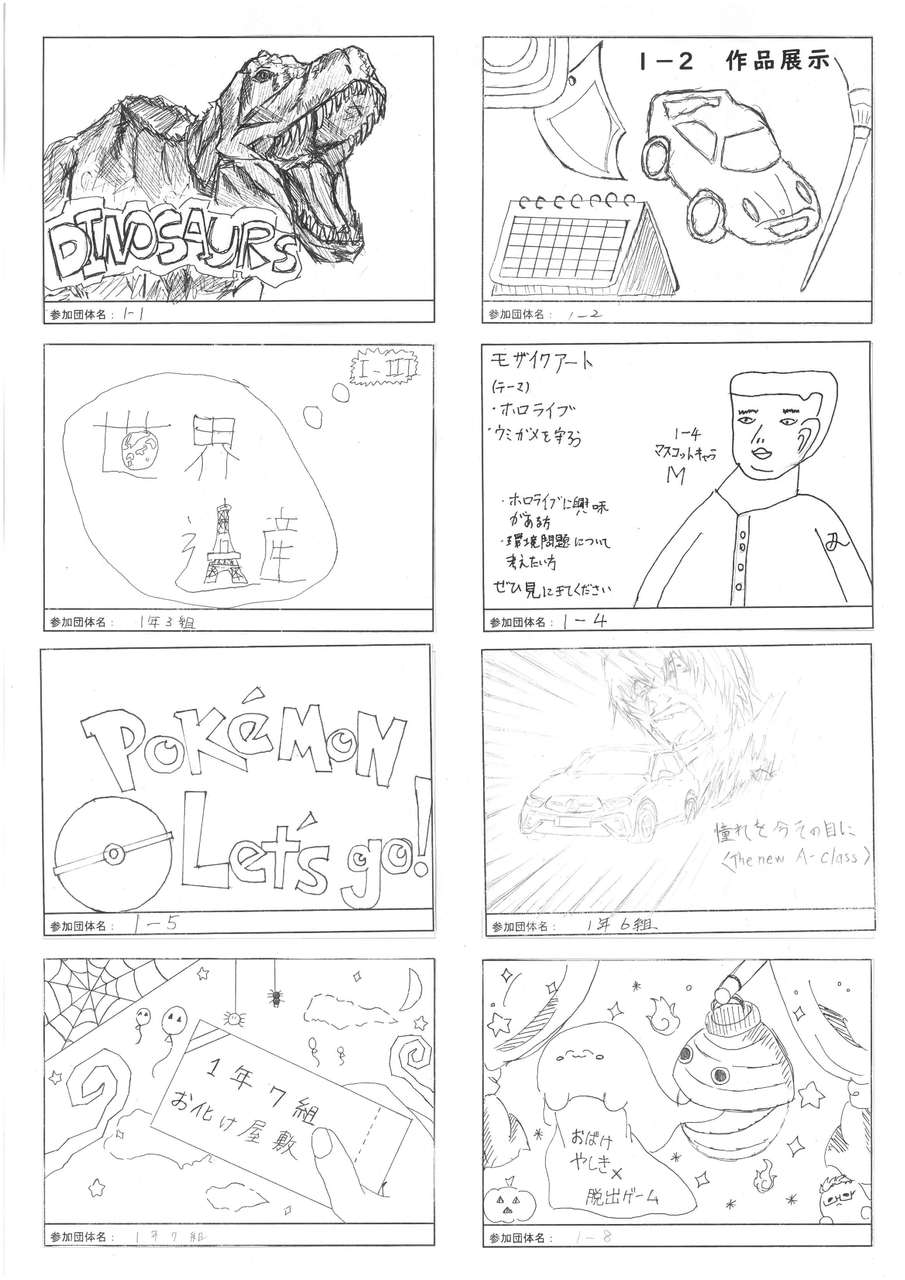 DINOSAURS
参加団体名： 1-1
1－2 作品展示
参加団体名： 1－2
I-III
世界
遺産
参加団体名： 1年3組
モザイクアート
(テーマ)
・ホロライブ
・ウミガメを守ろう
1－4
マスコットキャラ
M
・ホロライブに興味
がある方
・環境問題について
考えたい方
ぜひ見にきてください
参加団体名： 1－4
POKéMON
Let's go!
参加団体名： 1－5
憧れを今その目に
〈The new A-class〉
参加団体名： 1年6組
1年7組
お化け屋敷
参加団体名： 1年7組
おばけ
やしき×
脱出ゲーム
参加団体名： 1－8